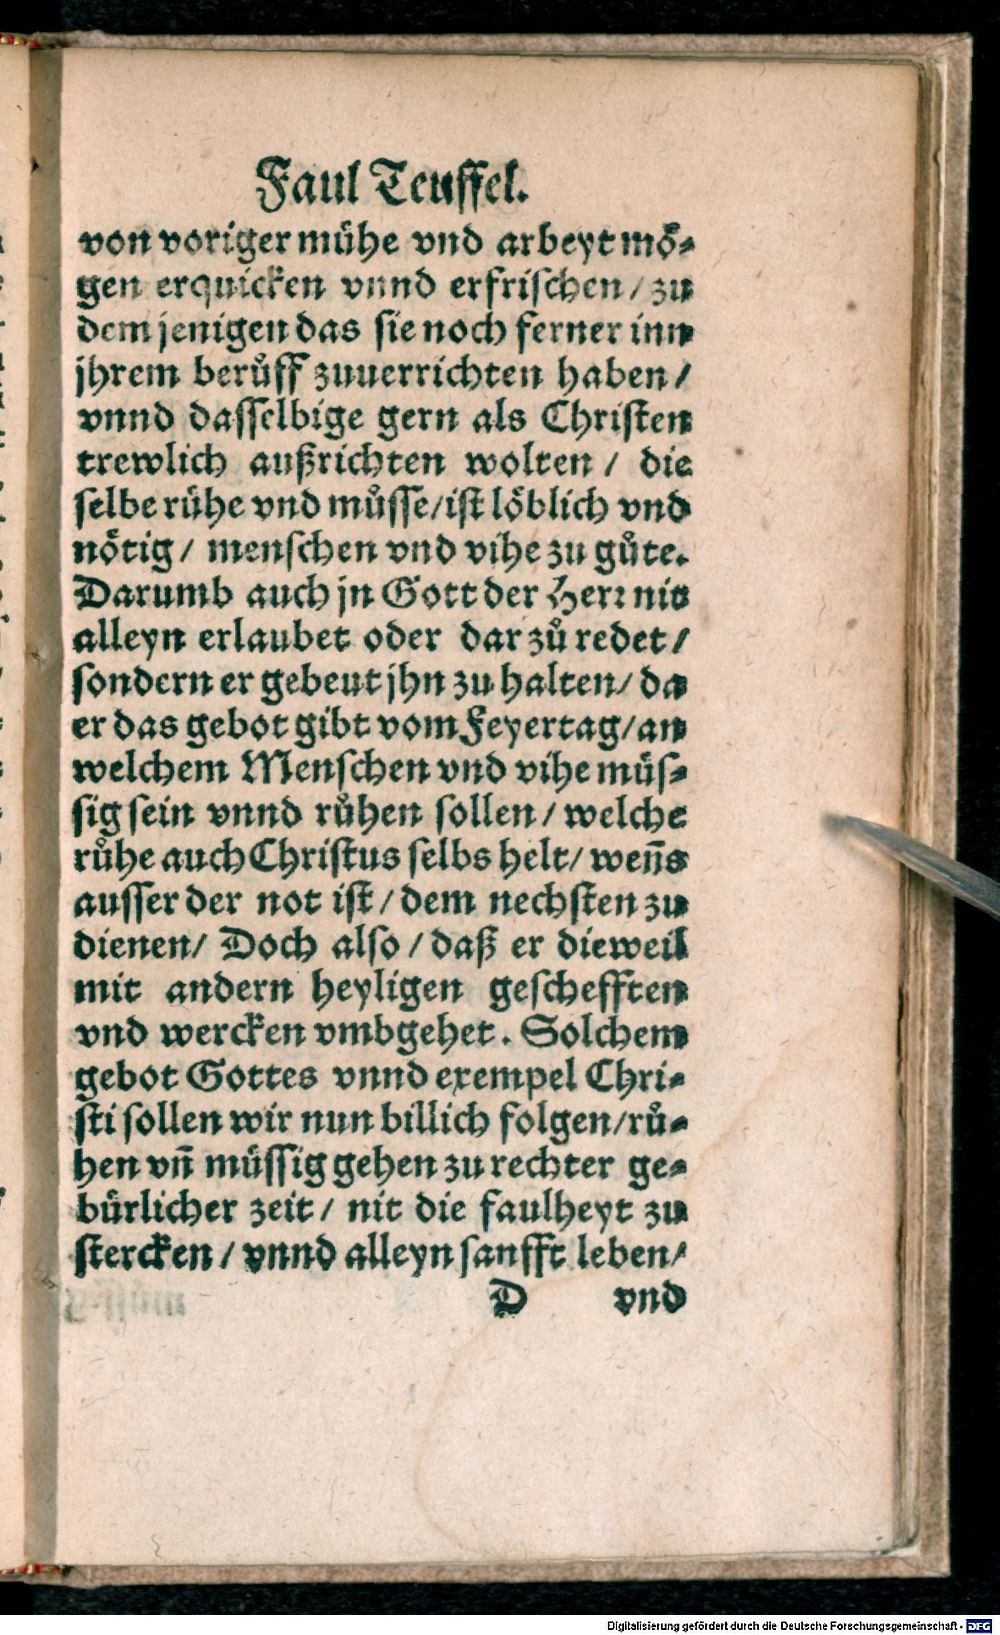 Faul Teuffel.
von voriger mühe vnd arbeyt mö-
gen erquicken vnnd erfrischen / zu
dem jenigen das sie noch ferner inn
jhrem berůff zuuerrichten haben /
vnnd dasselbige gern als Christen
trewlich außrichten wolten / die
selbe rühe vnd můsse / ist löblich vnd
nötig / menschen vnd vihe zu gůte.
Darumb auch jn Gott der Herr nit
alleyn erlaubet oder dar zů redet /
sondern er gebeut jhn zu halten / da
er das gebot gibt vom Feyertag / an
welchem Menschen vnd vihe müs-
sig sein vnnd růhen sollen / welche
růhe auch Christus selbs helt / weñs
ausser der not ist / dem nechsten zu
dienen / Doch also / daß er dieweil
mit andern heyligen geschefften
vnd wercken vmbgehet. Solchem
gebot Gottes vnnd exempel Chri-
sti sollen wir nun billich folgen / rů-
hen vñ müssig gehen zu rechter ge-
bürlicher zeit / nit die faulheyt zu
stercken / vnnd alleyn sanfft leben /
D vnd
Digitalisierung gefördert durch die Deutsche Forschungsgemeinschaft - DFG